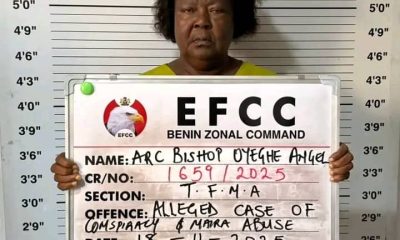 5'0"
4'9"
4'6"
4'3"
4'0"
3'9"
3'6"
3'3"
3'0"
2'9"
5'0"
4'9"
4'6"
4'3"
4'0"
3'9"
3'6"
3'3"
3'0"
2'9"
EFCC
EFCC
BENIN ZONAL COMMAND
NAME: ARC BISHOP OYEGHE ANGEL
CR/NO: 1659/2025
SECTION: T.F.M.A
OFFENCE: ALLEGED CASE OF
CONSPIRACY & NAIRA ABUSE
DATE 18-11-2025